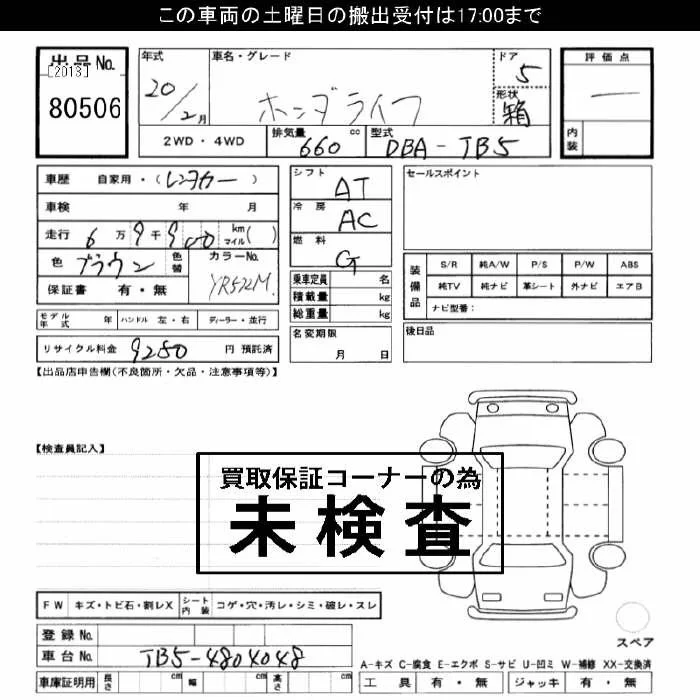 この車両の土曜日の搬出受付は17:00まで
出品No.
[2013]
80506
年式
20/2月
車名・グレード
ホンダライフ
ドア
5
形状
箱
評価点
―
内装
2WD・4WD
排気量 660 cc
型式 DBA-TB5
車歴 自家用・(レンタカー)
車検 年 月
走行 6万9千900 km マイル( )
色 ブラウン 色替
カラーNo.
YR572M
保証書 有・無
モデル年式 年 ハンドル 左・右 ディーラー・並行
リサイクル料金 9280 円 預託済
シフト
AT
冷房
AC
燃料
G
乗車定員 名
積載量 kg
総重量 kg
名変期限
月 日
セールスポイント
装備品
S/R 純A/W P/S P/W ABS
純TV 純ナビ 革シート 外ナビ エアB
ナビ型番:
後日品
【出品店申告欄(不良箇所・欠品・注意事項等)】
【検査員記入】
買取保証コーナーの為
未検査
FW キズ・トビ石・割レX シート内装 コゲ・穴・汚レ・シミ・破レ・スレ
登録No.
車台No. TB5-4804048
車庫証明用 長さ cm 幅 cm 高さ cm
スペア
A-キズ C-腐食 E-エクボ S-サビ U-凹ミ W-補修 XX-交換済
工具 有・無 ジャッキ 有・無